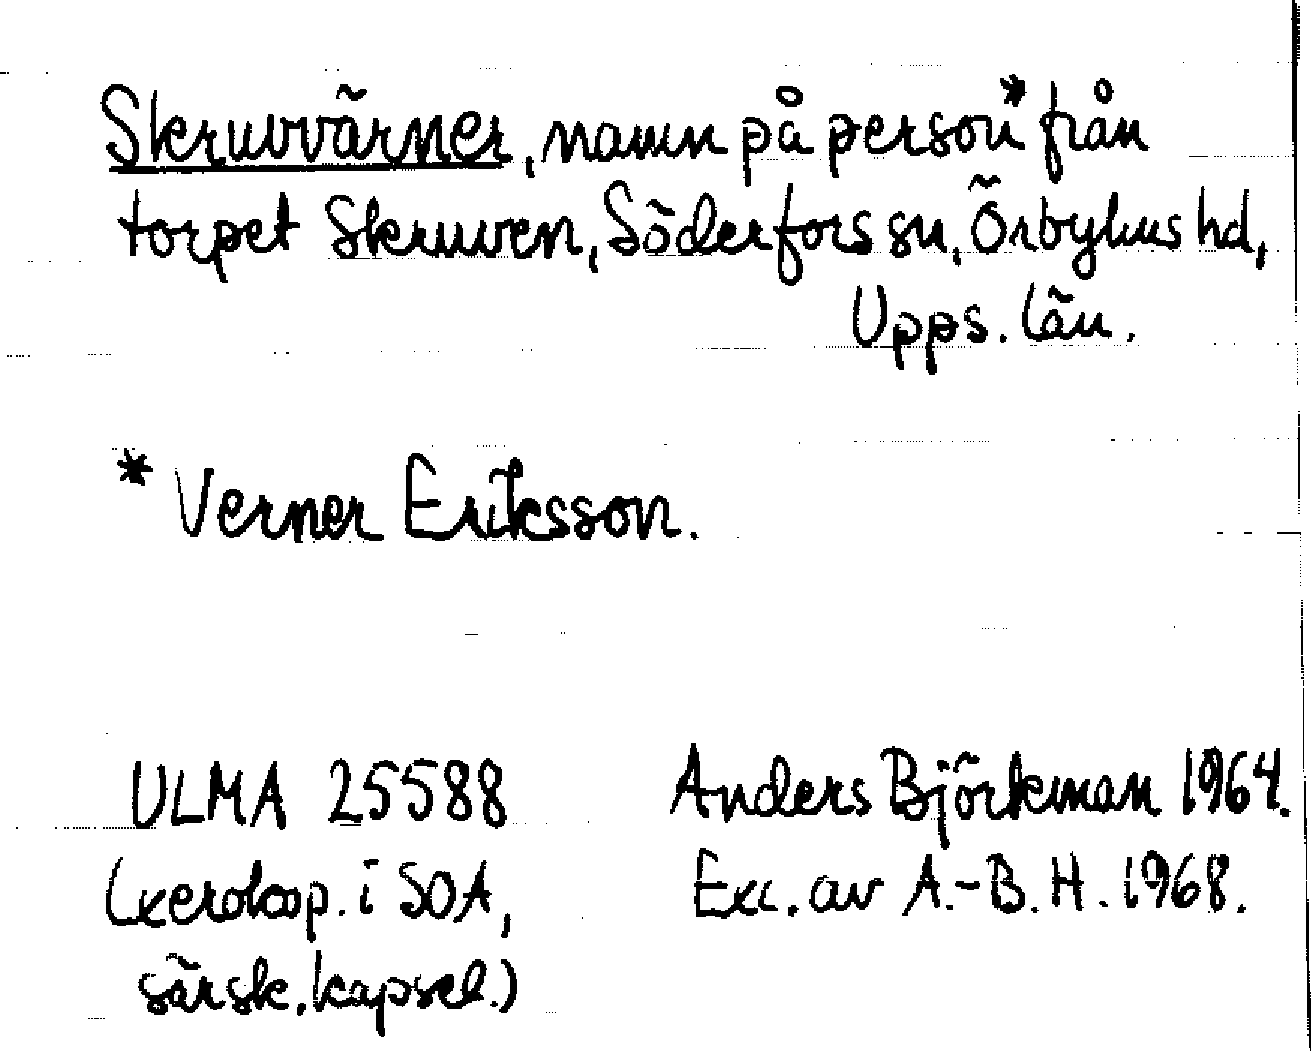 Skruvvärner, namn på person* från
torpet Skruven, Söderfors sn, Örbyhus hd,
Upps. län.
* Verner Eriksson.
ULMA 25588
(xerokop. i SOA,
särsk. kapsel.)
Anders Björkman 1964.
Exc. av A.-B. H. 1968.